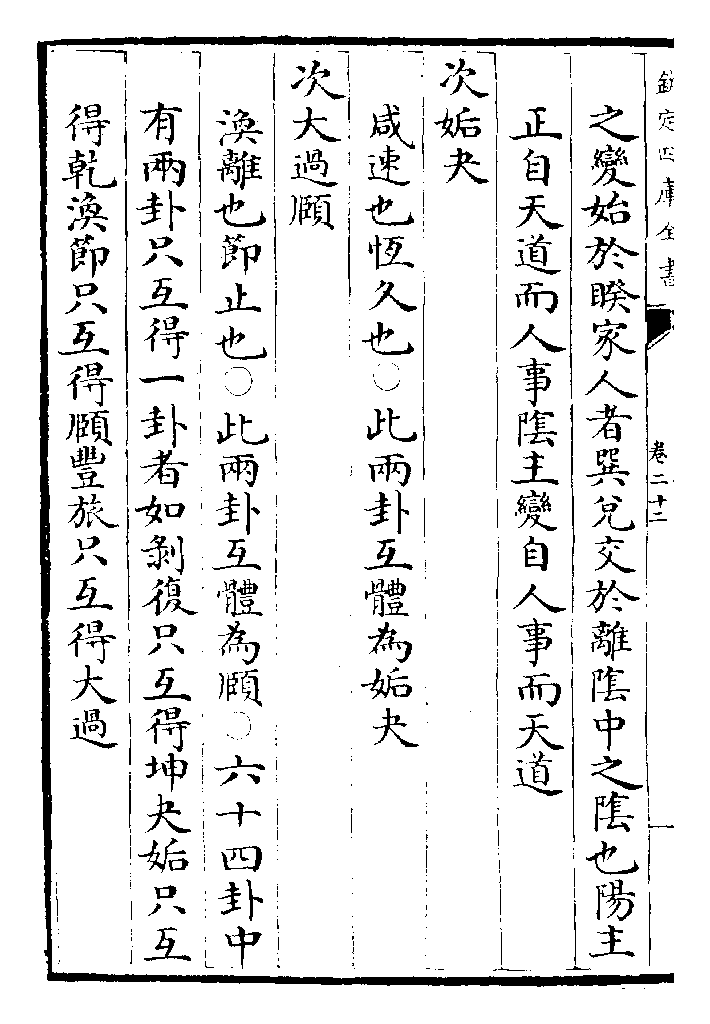 欽定四庫全書
卷二十二
一
之變始於睽家人者巽兌交於離陰中之陰也陽主
正自天道而人事陰主變自人事而天道
次姤夬
咸速也恆久也○此兩卦互體為姤夬
次大過頤
渙離也節止也○此兩卦互體為頤○六十四卦中
有兩卦只互得一卦者如剝復只互得坤夬姤只互
得乾渙節只互得頤豐旅只互得大過